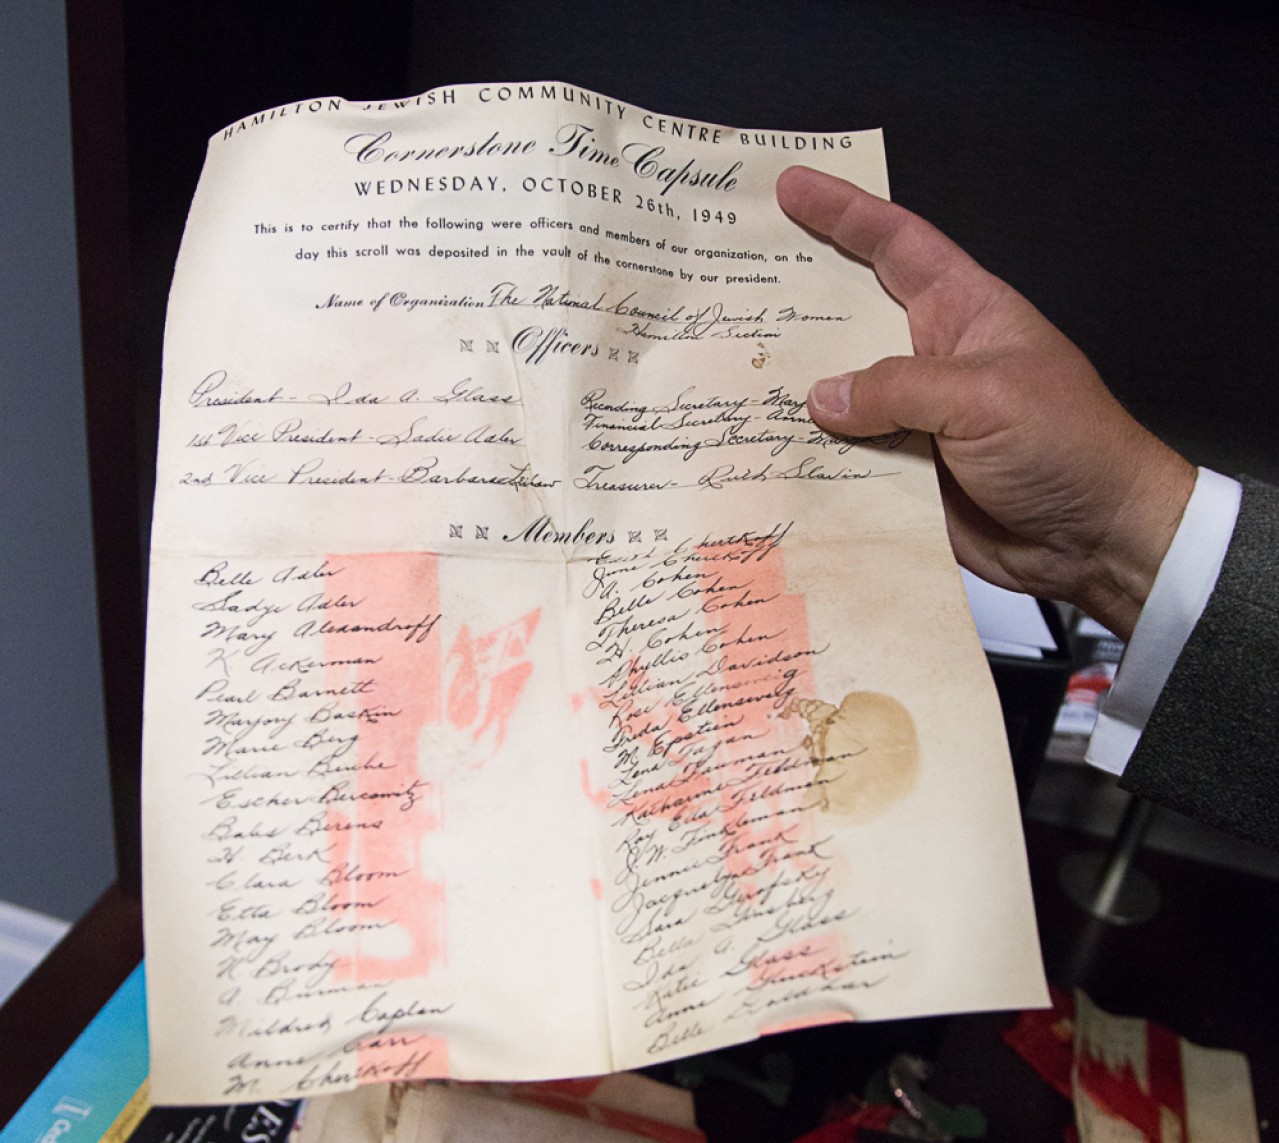 HAMILTON JEWISH COMMUNITY CENTRE BUILDING
Cornerstone Time Capsule
WEDNESDAY, OCTOBER 26th, 1949
This is to certify that the following were officers and members of our organization, on the
day this scroll was deposited in the vault of the cornerstone by our president.
Name of Organization The National Council of Jewish Women
Hamilton Section
Officers
President - Ida A. Glass
1st Vice President - Sadie Adler
2nd Vice President - Barbara
Recording Secretary - Mary
Financial Secretary -
Corresponding Secretary -
Treasurer - Ruth Slavin
Members
Belle Adler
Sadye Adler
Mary Alexandroff
K Ackerman
Pearl Barnett
Marjory Baskin
Marie Berg
Lillian
Esther Bercowitz
Babs Berens
H. Berk
Clara Bloom
Etta Bloom
May Bloom
N. Brody
A. Burman
Mildred Caplan
Anne Carr
M. Chertkoff
Enid Chertkoff
June Chertkoff
A. Cohen
Belle Cohen
Theresa Cohen
H. Cohen
Phyllis Cohen
Lillian Davidson
Rose Ellensweig
Freda Ellensweig
M. Epstein
Lena Fagan
Lena
Katharine Feldman
Ray Ella Feldman
J. W. Finkleman
Jennie Frank
Jacquelyn Frank
Sara Gerofsky
Bella Ginsberg
Ida A. Glass
Katie Glass
Anne Gluckstein
Belle Goldhar